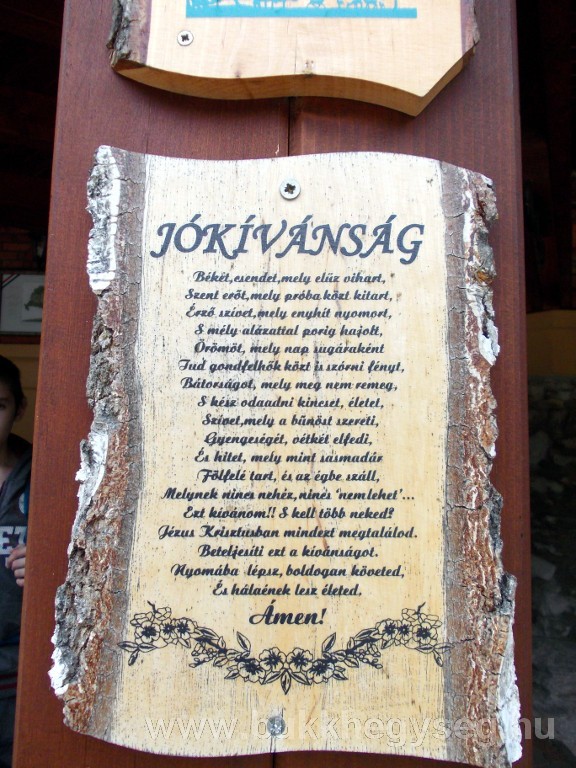 JÓKÍVÁNSÁG
Békét,csendet,mely elűz vihart,
Szent erőt,mely próba közt kitart,
Érző szívet,mely enyhít nyomort,
S mély alázattal porig hajolt,
Örömöt, mely nap sugáraként
Tud gondfelhők közt is szórni fényt,
Bátorságot, mely meg nem remeg,
S kész odaadni kincset, életet,
Szívet,mely a bűnöst szereti,
Gyengeségét, vétkét elfedi,
És hitet, mely mint sasmadár
Fölfelé tart, és az égbe száll,
Melynek nincs nehéz,nincs 'nemlehet'...
Ezt kívánom!! S kell több neked?
Jézus Krisztusban mindezt megtalálod.
Beteljesíti ezt a kívánságot.
Nyomába lépsz,boldogan követed,
És hálaének lesz életed.
Ámen!
www.bukkhegyseg.hu